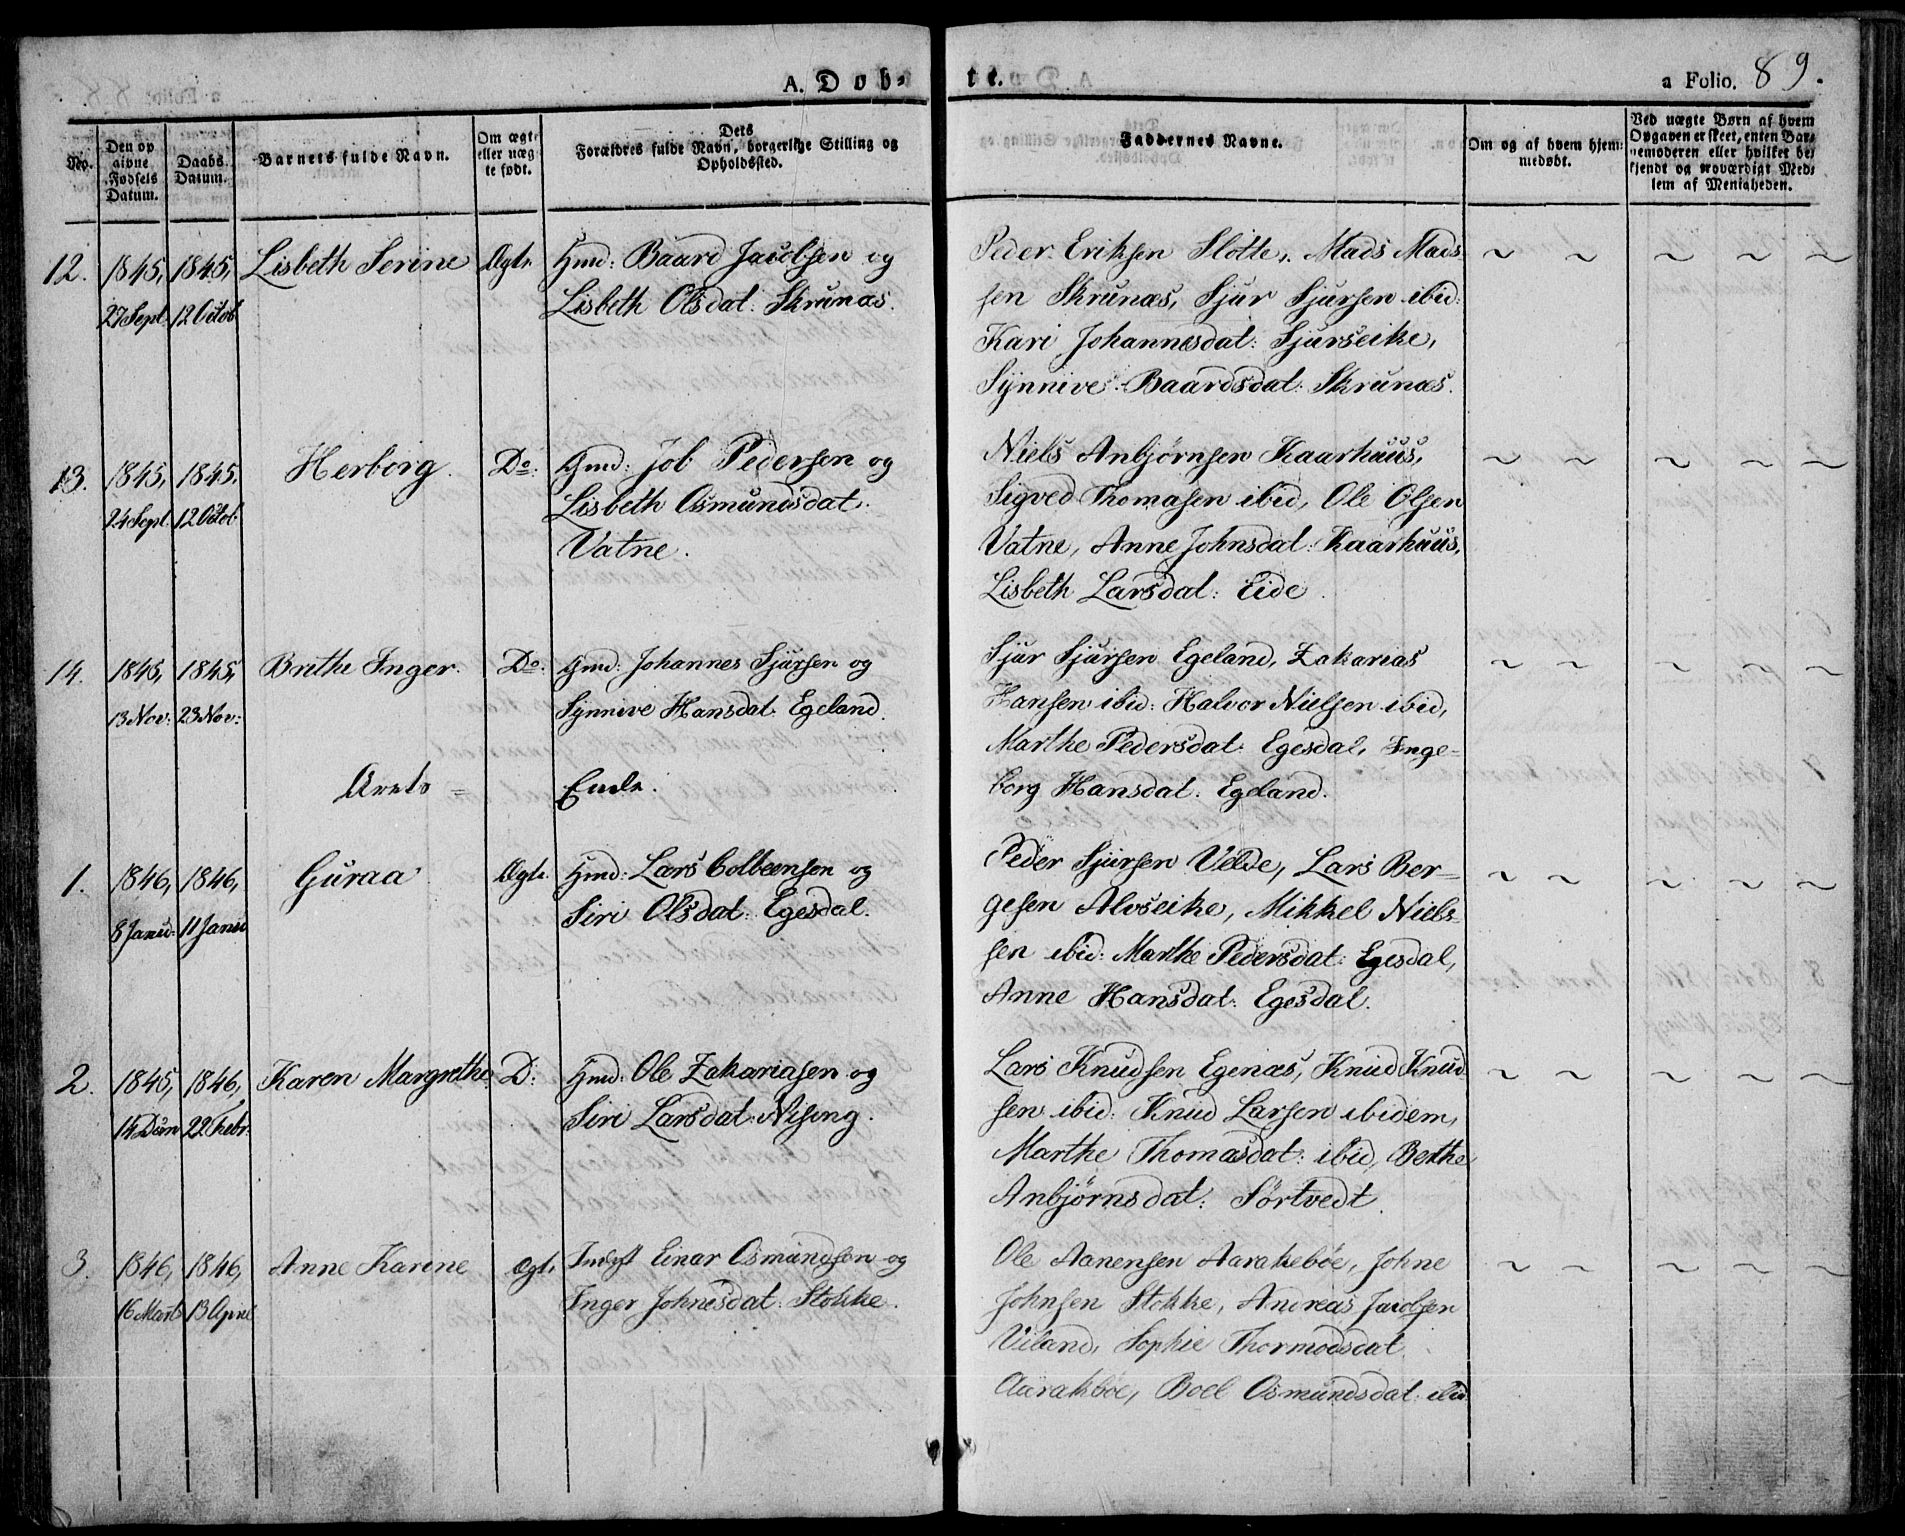 A. Døb-
te.
a Folio. 89.
No.
Den op
givne
Fødsels
Datum.
Daabs
Datum.
Barnets fulde Navn.
Om ægte
eller uæg
te født.
Forældres fulde Navn, borgerlige Stilling og
Dets
Opholdssted.
Faddernes Navne.
Om og af hvem hjem-
medøbt.
Ved uægte Børn af hvem
Opgaven er skeet, enten Bar-
nemoderen eller hvilket be-
kjendt og troværdigt Med-
lem af Menigheden.
12. 1845, 1845, Lisbeth Serine Ægte Gmd: Baard Jacobsen og
27 Sept 12 Octob Lisbeth Olsdat: Skrunæs.
Peder Eriksen Slotte, Mads Mads
sen Skrunæs, Sjur Sjursen ibid:
Kari Johannesdat: Sjurseike,
Synnive Baardsdat: Skrunæs.
13. 1845, 1845. Herborg. Do: Gmd: Job Pedersen og
24 Sept. 12 Octob Lisbeth Osmundsdat:
Vatne.
Niels Anbjørnsen Kaarhuus,
Sigved Thomasen ibid, Ole Olsen
Vatne, Anne Johnsdat: Kaarhuus,
Lisbeth Larsdat: Eide.
14. 1845, 1845, Brithe Inger. Do: Gmd: Johannes Sjursen og
13 Nov: 23 Nov: Synnive Hansdat: Egeland.
Sjur Sjursen Egeland, Zakarias
Hansen ibid: Halvor Nielsen ibid,
Marthe Pedersdat: Egesdal, Inge-
borg Hansdat: Egeland.
Arets = Ende.
1. 1846, 1846, Guraa Ægte. Gmd: Lars Colbeensen og
8 Janu: 11 Janu Siri Olsdat: Egesdal.
Peder Sjursen Velde, Lars Ber-
gesen Alvseike, Mikkel Niels-
sen ibid: Marthe Pedersdat: Egesdal,
Anne Hansdat: Egesdal.
2. 1845, 1846, Karen Margrethe D: Gmd: Ole Zakariasen og
14 22 Febr: Siri Larsdat: Nising.
Lars Knudsen Egenæs, Knud Knud
sen ibid: Knud Larsen ibidem,
Marthe Thomasdat: ibid, Berthe
Anbjørnsdat: Sørtvedt.
3. 1846, 1846, Anne Karine Ægte. Indst Einar Osmundsen og
16 Marts 13 April Inger Johnesdat: Stokke.
Ole Aanensen Aarakebøe, Johne
Johnsen Stokke, Andreas Jacobsen
Viland, Sophie Thormodsdat
Aarakbøe, Boel Osmundsdat: ibid